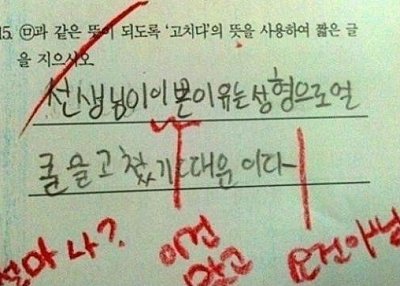 15. ㉤과 같은 뜻이 되도록 '고치다'의 뜻을 사용하여 짧은 글
을 지으시오
선생님이 이쁜이유는성형으로얼
굴을고쳤기때문이다
나?
이건
맞고
요건아님